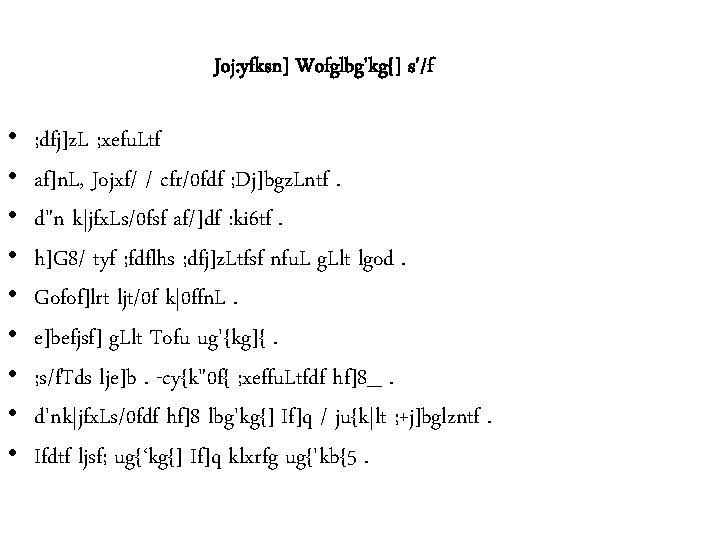 Joj:yfksn] Wofglbg'kg{] s'/f
• ;dfj]zL ;xefuLtf
• af]nL, Jojxf/ / cfr/0fdf ;Dj]bgzLntf .
• d"n k|jfxLs/0fsf af/]df :ki6tf .
• h]G8/ tyf ;fdflhs ;dfj]zLtfsf nfuL gLlt lgod .
• Gofof]lrt ljt/0f k|0ffnL .
• e]befjsf] gLlt Tofu ug'{kg]{ .
• ;s/fTds lje]b . -cy{k"0f{ ;xeffuLtfdf hf]8_ .
• d'nk|jfxLs/0fdf hf]8 lbg'kg{] If]q / ju{k|lt ;+j]bglzntf .
• Ifdtf ljsf; ug{‘kg{] If]q klxrfg ug{'kb{5 .